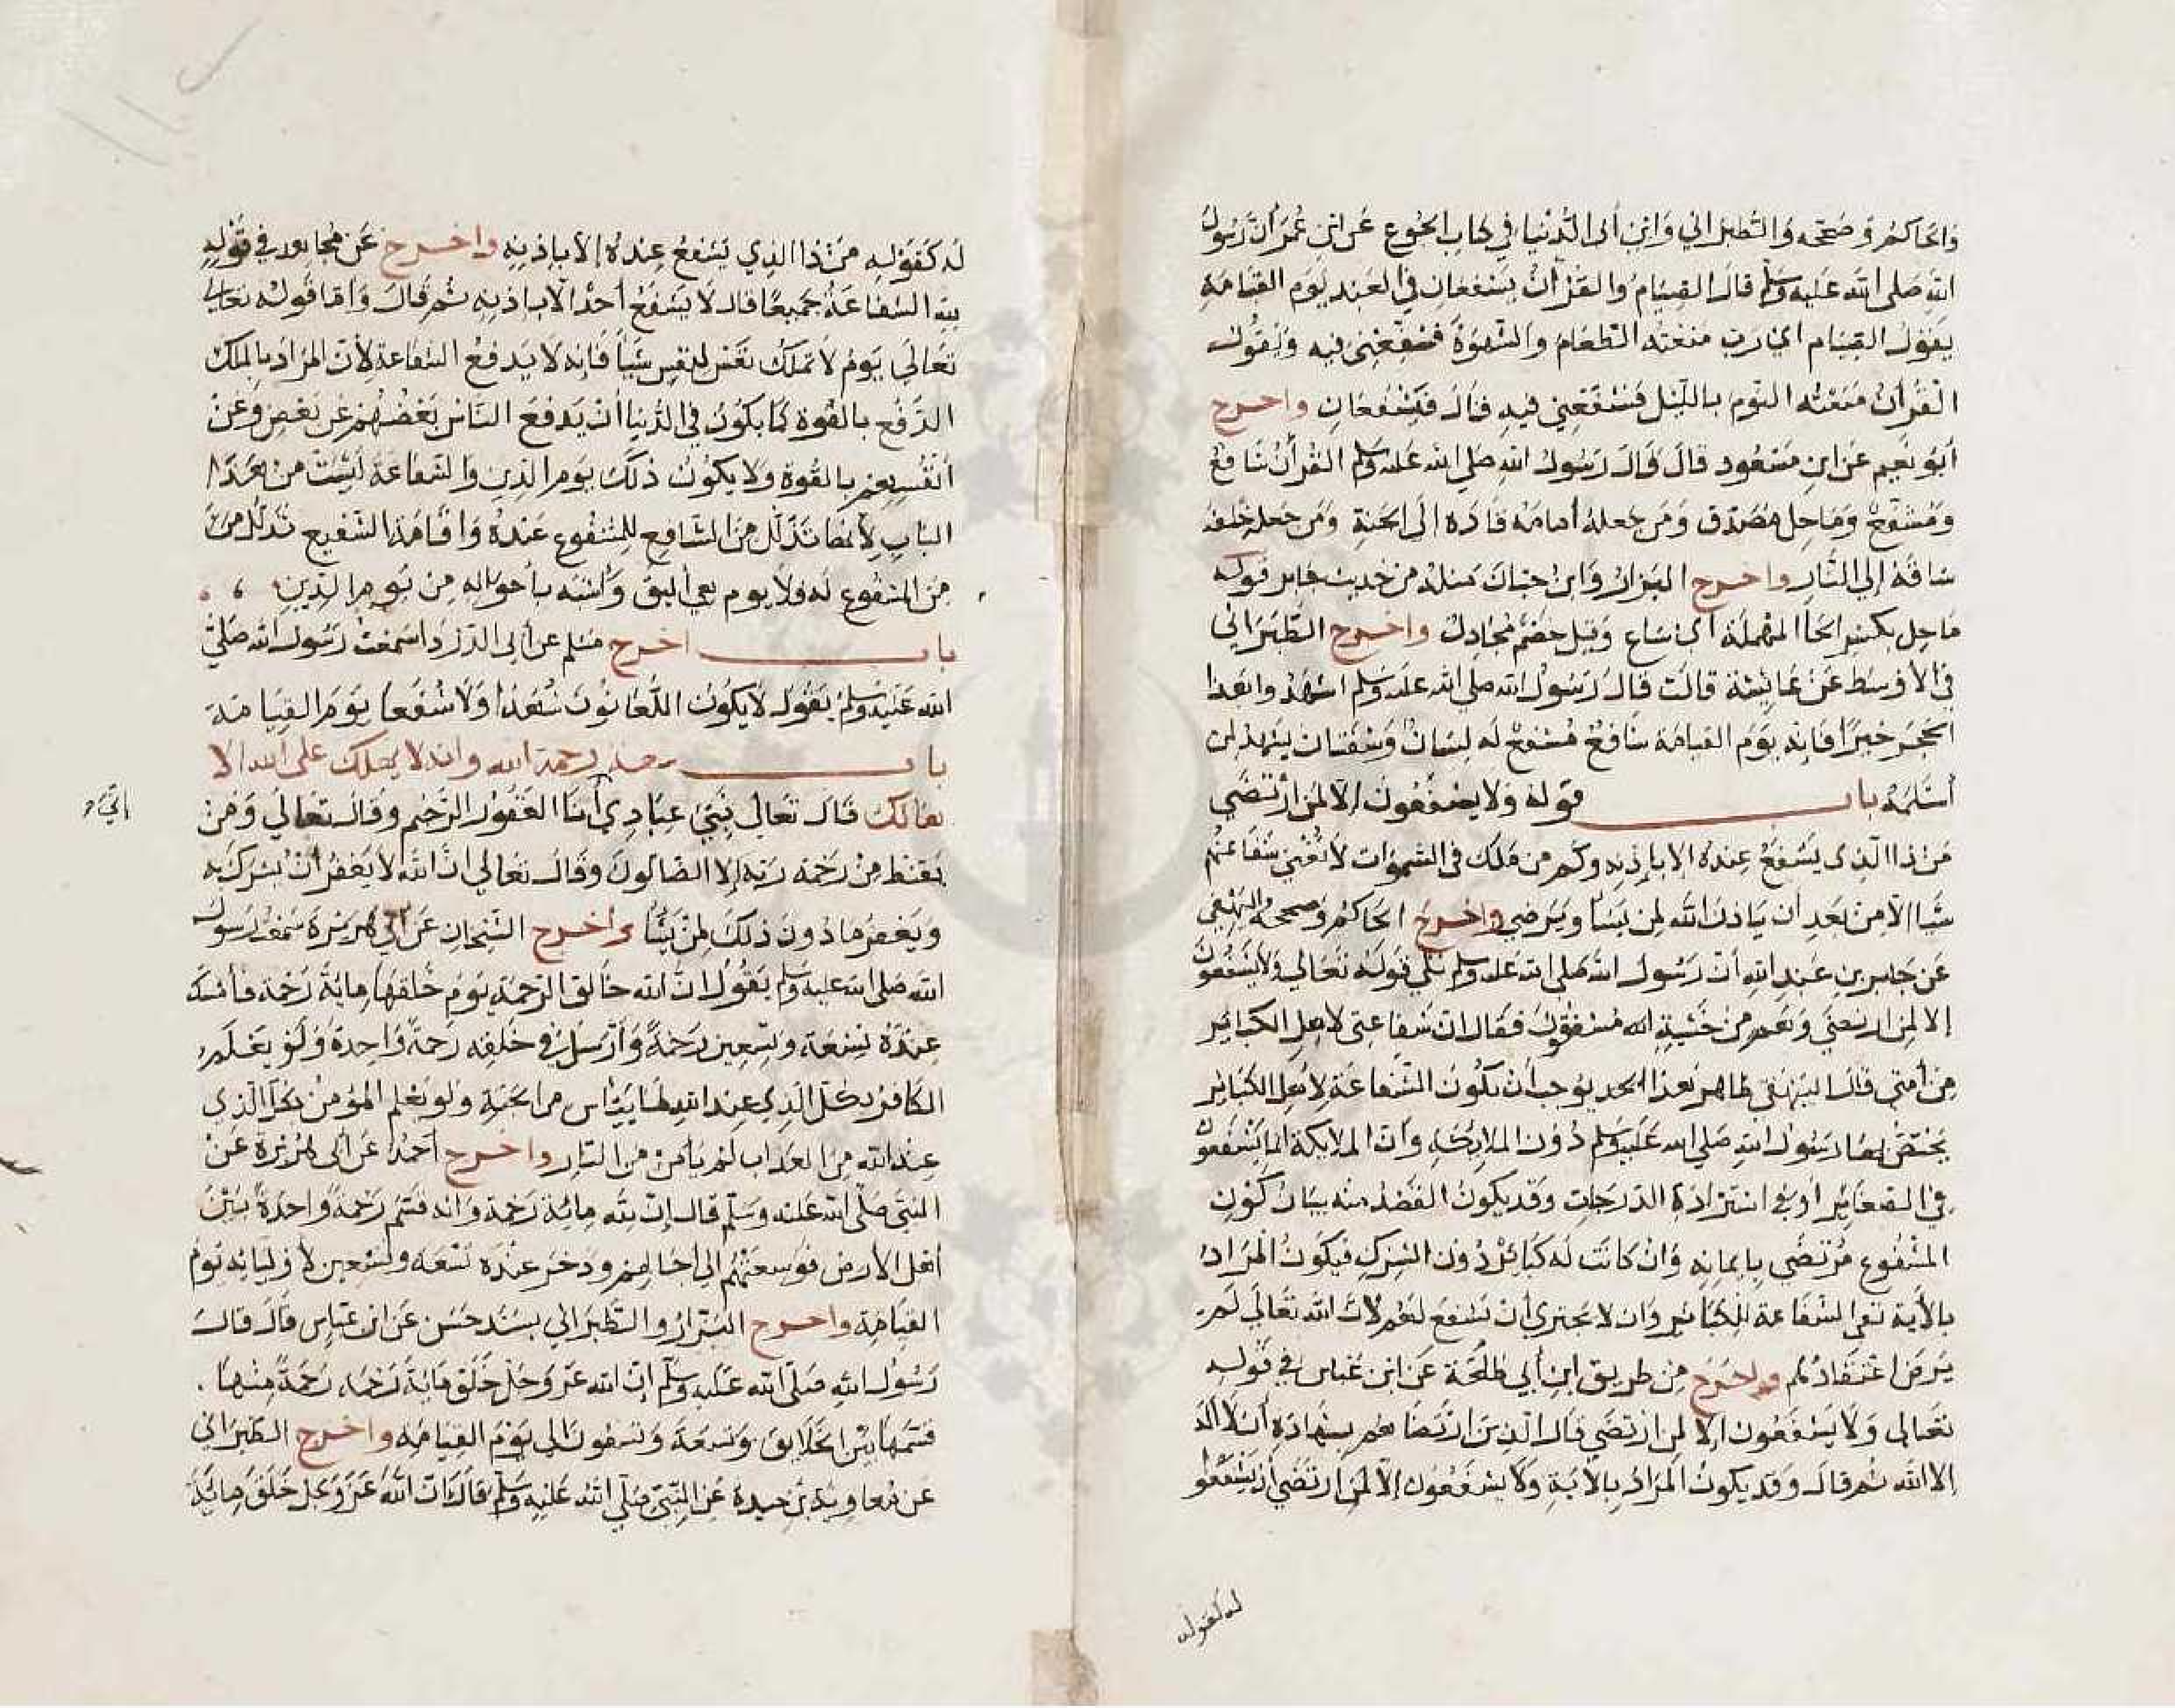 والحاكم وصححه والطبراني وابن أبي الدنيا في كتاب الجوع عن ابن عمر أن رسول
الله صلى الله عليه وسلم قال الصيام والقرآن يشفعان في العبد يوم القيامة
يقول الصيام أي رب منعته الطعام والشهوة فشفعني فيه ويقول
القرآن منعته النوم بالليل فشفعني فيه قال فيشفعان واخرج
أبو نعيم عن ابن مسعود قال قال رسول الله صلى الله عليه وسلم القرآن شافع
ومشفع وماحل مصدق ومن جعله أمامه قاده إلى الجنة ومن جعله خلفه
ساقه إلى النار واخرج البزار وابن حبان مثله من حديث جابر قوله
ماحل بكسر الحا المهملة أي ساع وقيل خصم مجادل واخرج الطبراني
في الأوسط عن عائشة قالت قال رسول الله صلى الله عليه وسلم اشهدوا هذا
الحجر خيرا فإنه يوم القيامة شافع مشفع له لسان وشفتان يشهد لمن
أستلمه باب قوله ولا يشفعون إلا لمن ارتضى
من ذا الذي يشفع عنده إلا بإذنه وكم من ملك في السموات لا تغني شفاعتهم
شيا الا من بعد أن ياذن الله لمن يشا ويرضي واخرج الحاكم وصححه والبيهقي
عن جابر بن عبد الله أن رسول الله صلى الله عليه وسلم تلي قوله تعالى ولا يشفعون
إلا لمن ارتضى وهم من خشية الله مشفقون فقال ان شفاعتي لاهل الكبائر
من أمتي قال البيهقي ظاهر هذا الحد يوجب أن تكون الشفاعة لأهل الكبائر
يختص بها رسول الله صلى الله عليه وسلم دون الملائكة وان الملائكة انما يشفعون
في الصغائر أو في استزادة الدرجات وقد يكون القصد منه بيان كون
المشفوع مرتضى بايمانه وان كانت له كبائر دون الشرك فيكون المراد
بالآية نفي الشفاعة للكبائر وان لا يجتري أن تشفع لهم لأن الله تعالى لم
يرض اعتقادهم واخرج من طريق ابن أبي طلحة عن ابن عباس في قوله
تعالى ولا يشفعون إلا لمن ارتضى قال الذين ارتضاهم بشهادة أن لا اله
إلا الله ثم قال وقد يكون المراد بالآية ولا يشفعون إلا لمن ارتضى أن يشفعوا
له كقوله
له كقوله من ذا الذي يشفع عنده إلا بإذنه واخرج عن مجاهد في قوله
لله الشفاعة جميعا قال لا يشفع أحد الا باذنه ثم قال واما قوله تعالى
تعالى يوم لا تملك نفس لنفس شيأ فانه لا يدفع الشفاعة لأن المراد بالملك
الدفع بالقوة كما يكون في الدنيا أن يدفع الناس بعضهم عن بعض وعن
أنفسهم بالقوة ولا يكون ذلك يوم الدين والشفاعة ليست من هذا
الباب لأنها تذلل من الشافع للمشفوع عنده واقامة الشفيع تذلل من
من المشفوع له ولا يوم هي أليق وأشبه بأحواله من يوم الدين
باب اخرج مسلم عن أبي الدرردا سمعت رسول الله صلى
الله عليه وسلم يقول لا يكون اللعانون شهدا ولا شفعا يوم القيامة
باب سعة رحمة الله وانه لا يهلك على الله الا
هالك قال تعالى نبئ عبادي أنا الغفور الرحيم وقال تعالى ومن
يقنط من رحمة ربه إلا الضالون وقال تعالى ان الله لا يغفر أن يشرك به
ويغفر ما دون ذلك لمن يشا واخرج الشيخان عن أبي هريرة سمعت رسول
الله صلى الله عليه وسلم يقول ان الله خالق الرحمة يوم خلقها مائة رحمة فأمسك
عنده تسعة وتسعين رحمة وأرسل في خلقه رحمة واحدة ولو يعلم
الكافر بكل الذي عند الله لما ييئس من الجنة ولو يعلم المؤمن بكل الذي
عند الله من العذاب لم يأمن من النار واخرج أحمد عن أبي هريرة عن
النبي صلى الله عليه وسلم قال إن لله مائة رحمة وانه قسم رحمة واحدة بين
أهل الأرض فوسعتهم إلى اجالهم ودخر عنده تسعة وتسعين لأوليايه يوم
القيامة واخرج البزار والطبراني بسند حسن عن ابن عباس قال قال
رسول الله صلى الله عليه وسلم إن الله عز وجل خلق مائة رحمة رحمة منها
قسمها بين الخلايق وتسعة وتسعون الى يوم القيامة واخرج الطبراني
عن معاوية بن حيدة عن النبي صلى الله عليه وسلم قال ان الله عز وجل خلق مائة